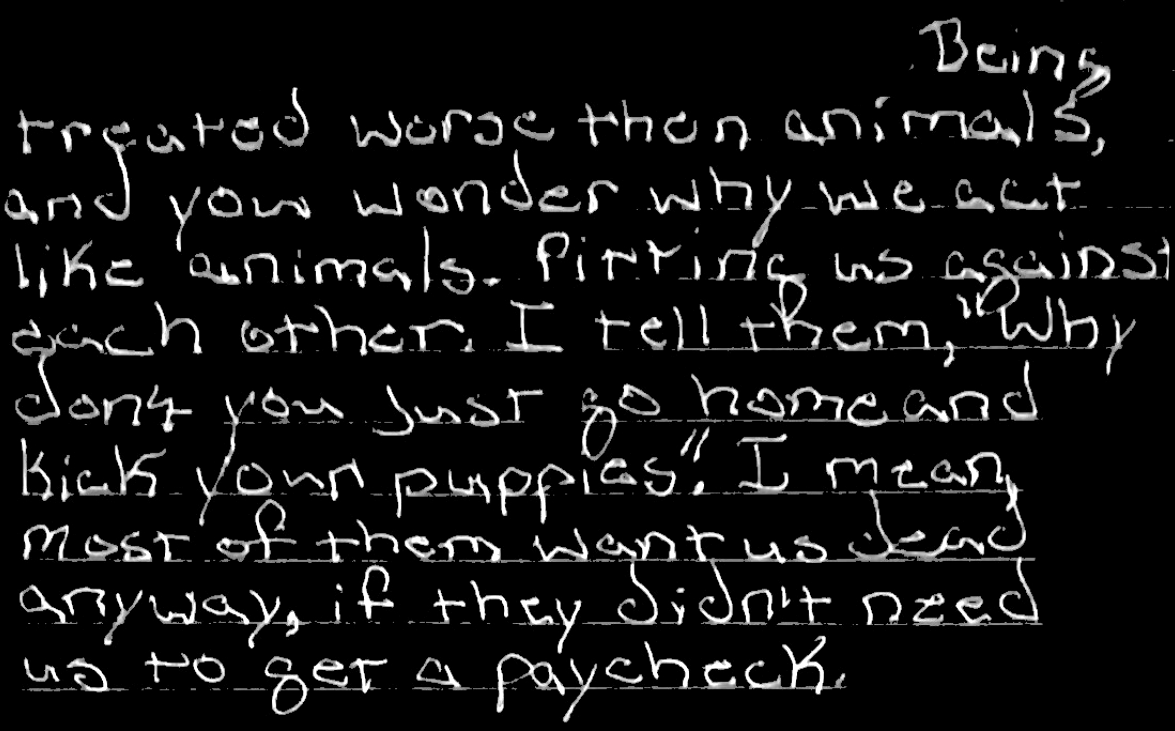 Being
treated worse then animals,
and you wonder why we act
like animals. Pitting us against
each other. I tell them, "Why
don't you just go home and
kick your puppies". I mean,
most of them want us dead
anyway, if they didn't need
us to get a paycheck.